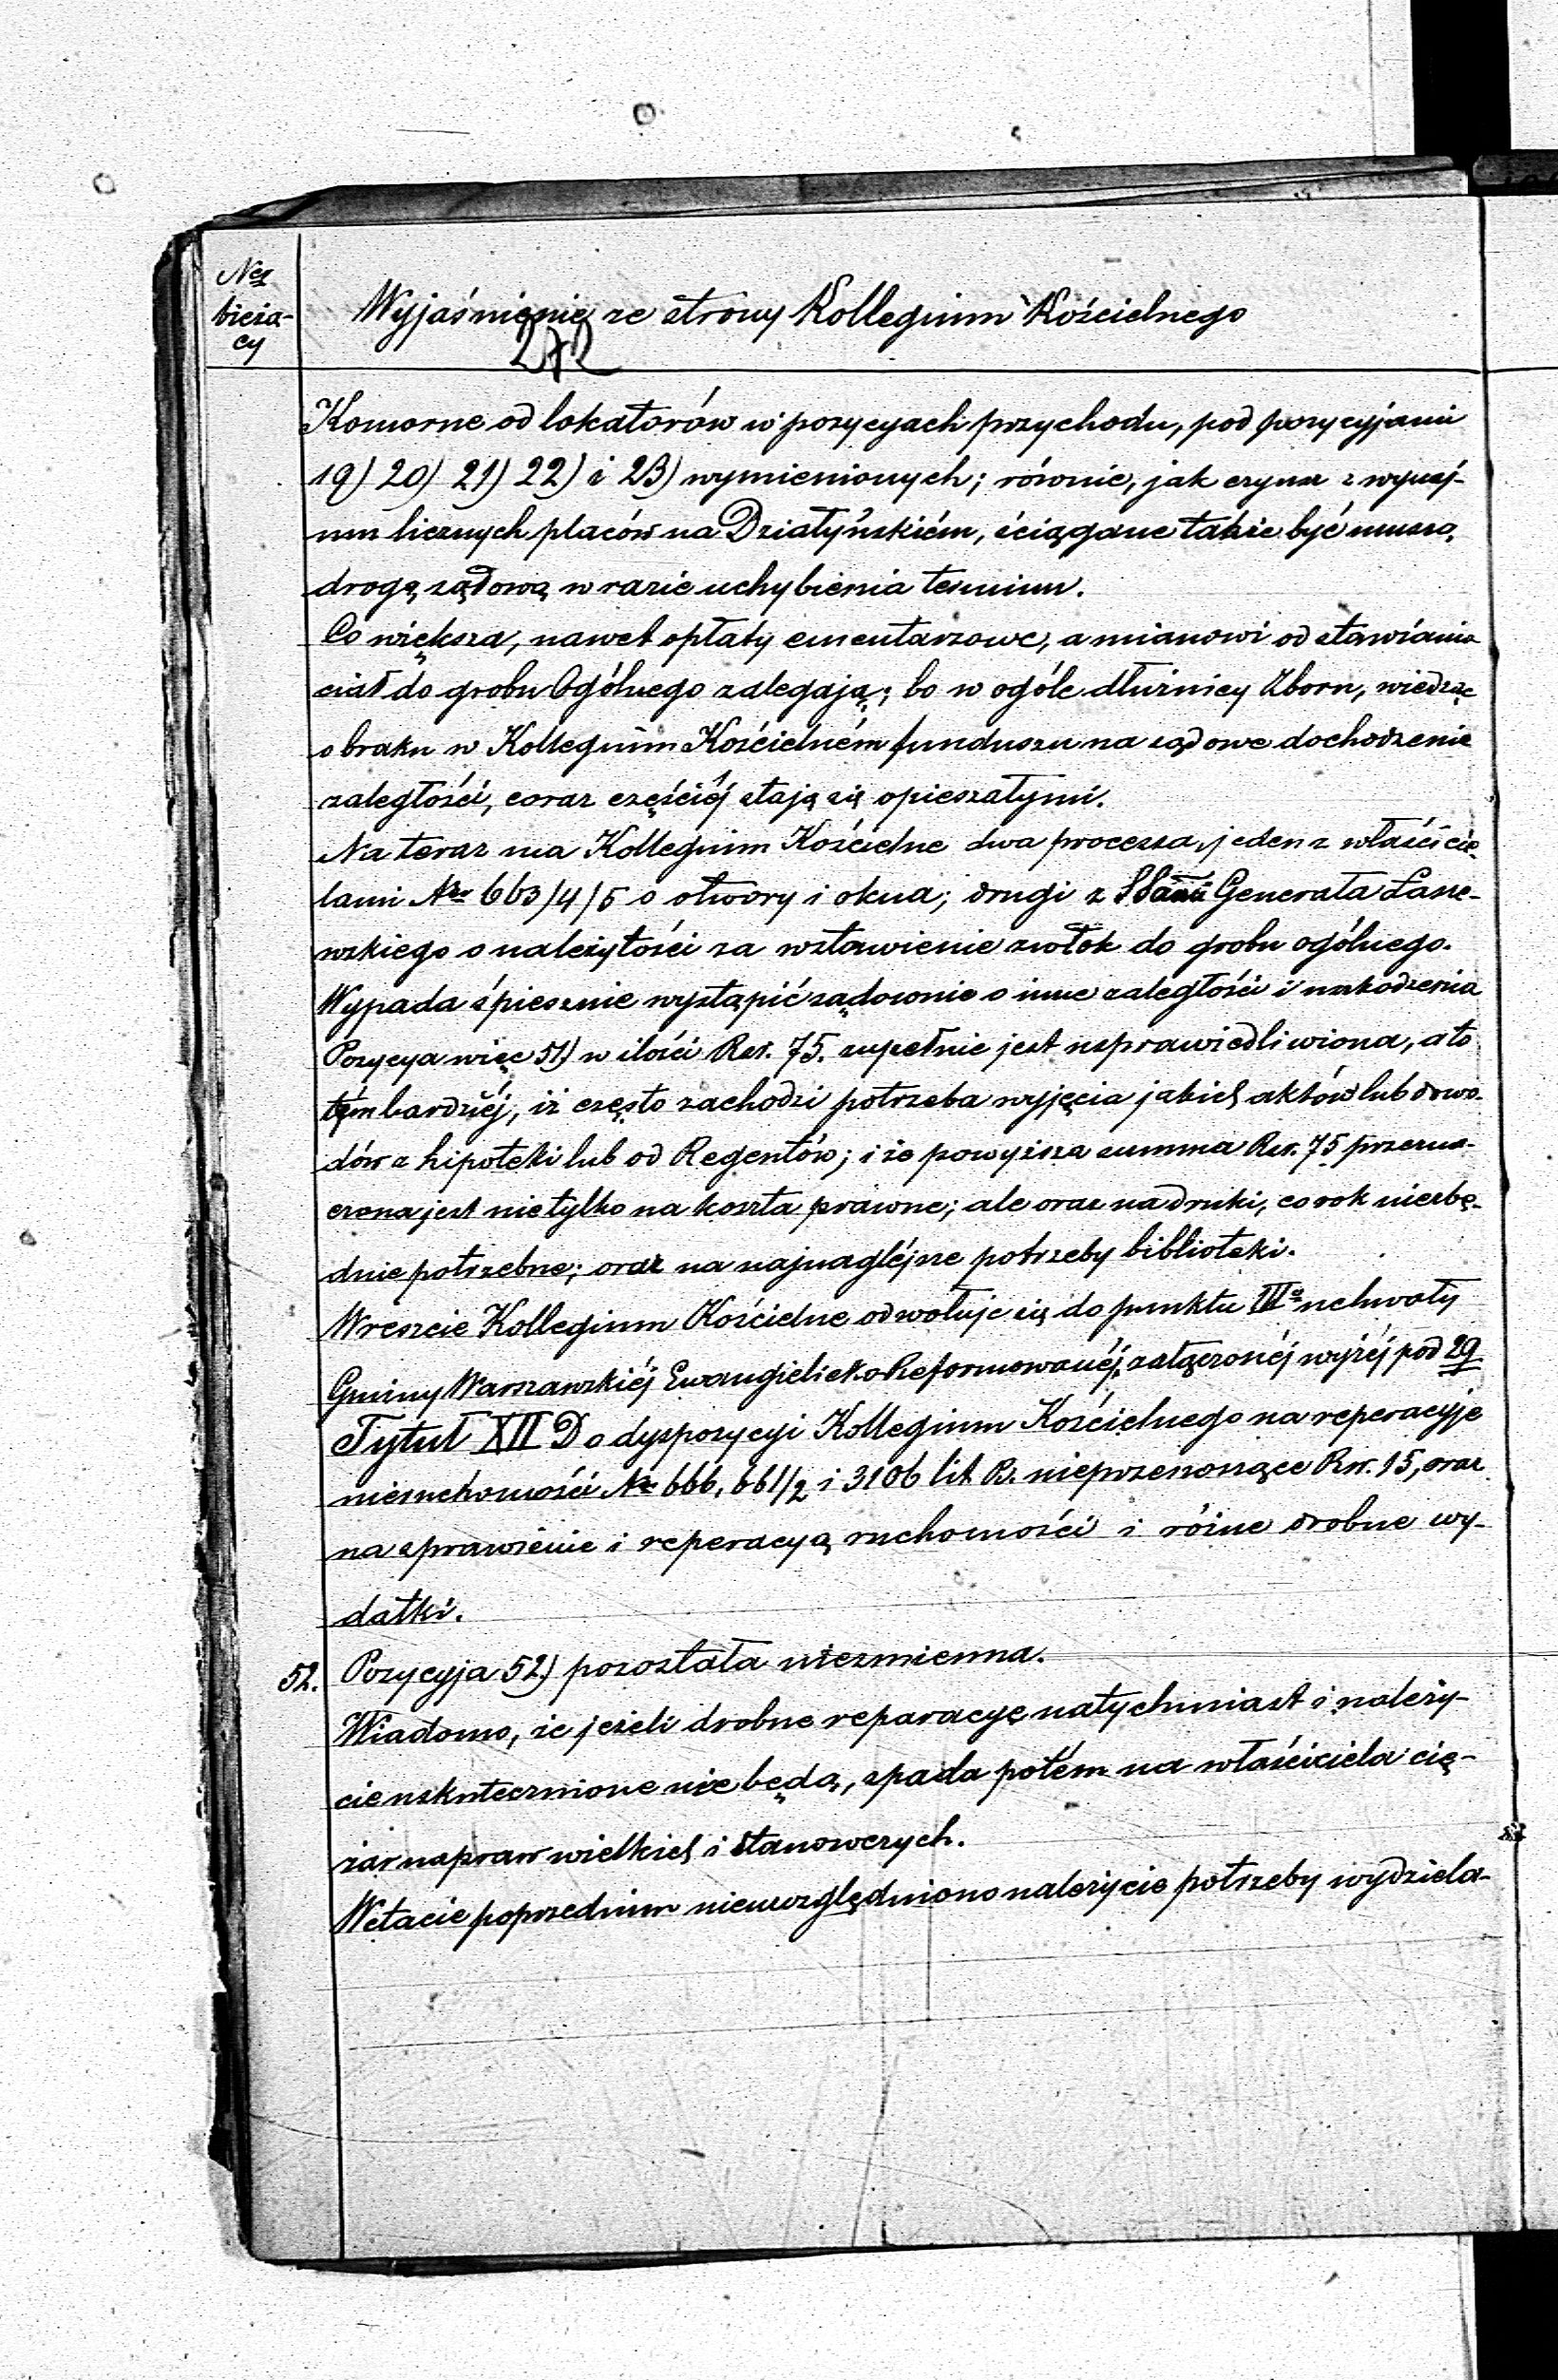 Ner
bieżą-
cy
Wyjaśnienie ze strony Kollegium Kościelnego
272
Komorne od lokatorów w pozycyach przychodu, pod pozycyjami
19) 20) 21) 22) i 23) wymienionych; równie, jak czynsz z wynaj-
mu licznych placów na Działyńskiém, ściągane także być muszą,
drogą sądową w razie uchybienia terminu.
Co większa, nawet opłaty cmentarzowe, a mianowi od stawiania
ciał do grobu Ogólnego zalegają; bo w ogóle dłużnicy Zboru, wiedząc
o braku w Kollegium Kościelném funduszu na sądowe dochodzenie
zaległości, coraz częściéj stają się opieszałymi.
Na teraz ma Kollegium Kościelne dwa processa, jeden z właścicie-
lami Nro 663/4/5 o otwory i okna; drugi z Generała Łasze-
wskiego o należytości za wstawienie zwłok do grobu ogólnego.
Wypada śpiesznie wystąpić sądownie o inne zaległości i uszkodzenia
Pozycya więc 51) w ilości Rsr. 75. zupełnie jest usprawiedliwiona, a to
tém bardziéj, iż często zachodzi potrzeba wyjęcia jakich aktów lub dowo-
dów z hipoteki lub od Regentów; i że powyższa summa Rsr. 75 przezna-
czena jest nie tylko na koszta prawne; ale oraz na druki, co rok niezbę-
dnie potrzebne; oraz na najnagléjsze potrzeby biblioteki.
Wreszcie Kollegium Kościelne odwołuje się do punktu IIIo uchwały
Gminy Warszawskiéj Ewangielicko Reformowanéj, załączonéj wyżéj pod 29
Tytuł XII Do dyspozycyi Kollegium Kościelnego na reperacyje
nieruchomości Nr 666, 661/2 i 3106 lit B. nieprzenoszące Rsr. 15, oraz
na sprawienie i reperacyą ruchomości i różne drobne wy-
datki.
52. Pozycyja 52) pozostała niezmienna.
Wiadomo, że jeżeli drobne reparacyę natychmiast i należy-
cie uskutecznione nie będą, spada potém na właściciela cię-
żar napraw wielkich i stanowczych.
W etacie poprzednim nieuwzględniono należycie potrzeby wydziela-